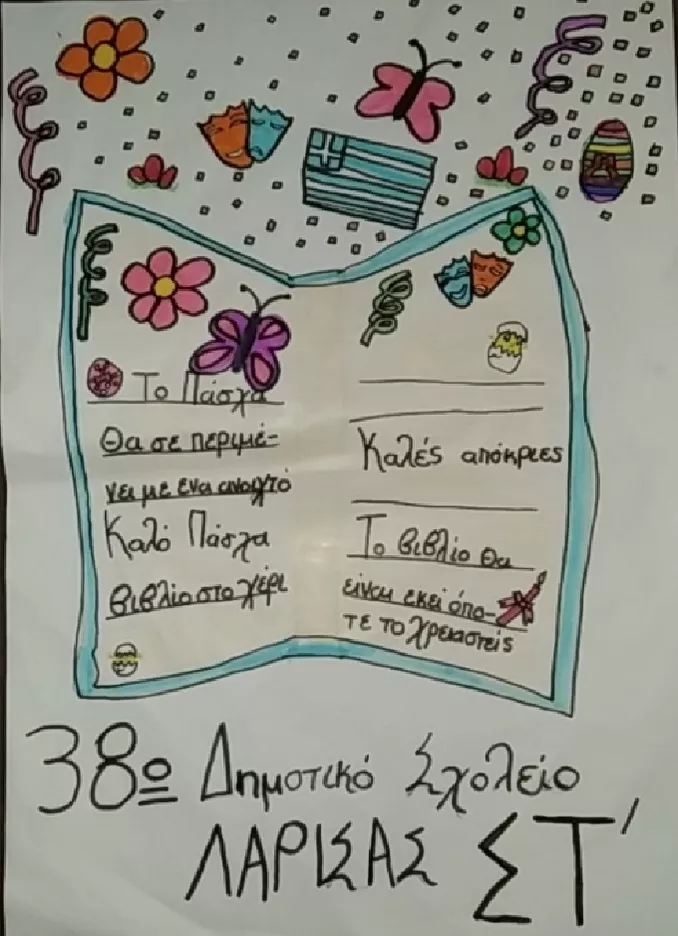 Το Πάσχα
Θα σε περιμέ-
νει με ενα ανοιχτό
Καλό Πάσχα
Βιβλίο στο χέρι
Καλές απόκριες
Το βιβλίο θα
είναι εκεί όπο-
τε το χρειαστείς
38ο Δημοτικό Σχολείο
ΛΑΡΙΣΑΣ ΣΤ'